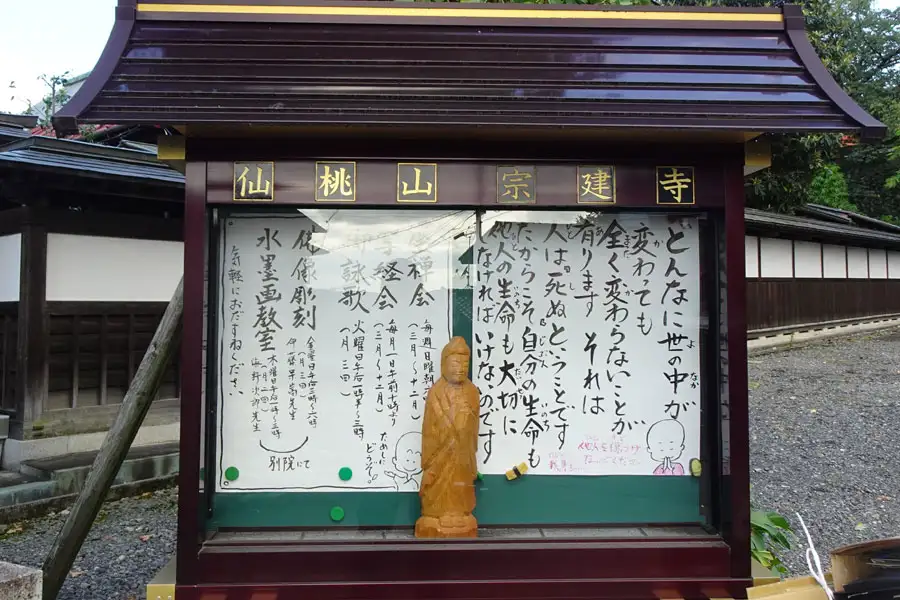 仙桃山宗建寺
どんなに世の中が
変わっても
全く変わらないことが
有ります それは
人は死ぬということです
だからこそ自分の生命も
他人の生命も大切に
しなければいけないのです
坐禅会
毎週日曜朝
(三月〜十二月)
写経会
毎月一日午前十時より
(三月〜十二月)
詠歌
火曜日午后一時半〜三時
(月三回)
佛像彫刻
金曜日午后三時〜六時
(月三回)
水墨画教室
木曜日午后一時〜三時
(月二回)
別院にて
気軽におたずねください
ためしに
どうぞ